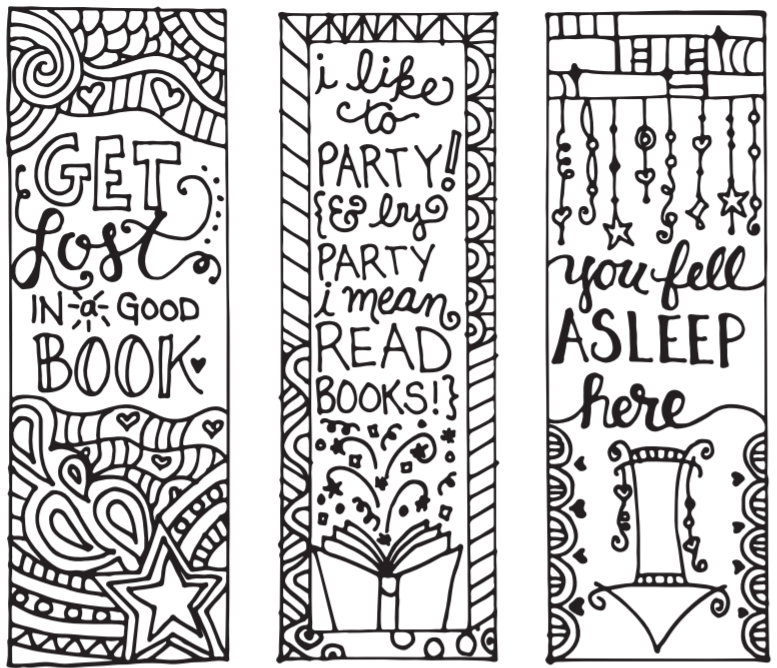 GET
Lost
IN a GOOD
BOOK
i like
to
PARTY!
{& by
PARTY
i mean
READ
BOOKS!}
you fell
ASLEEP
here